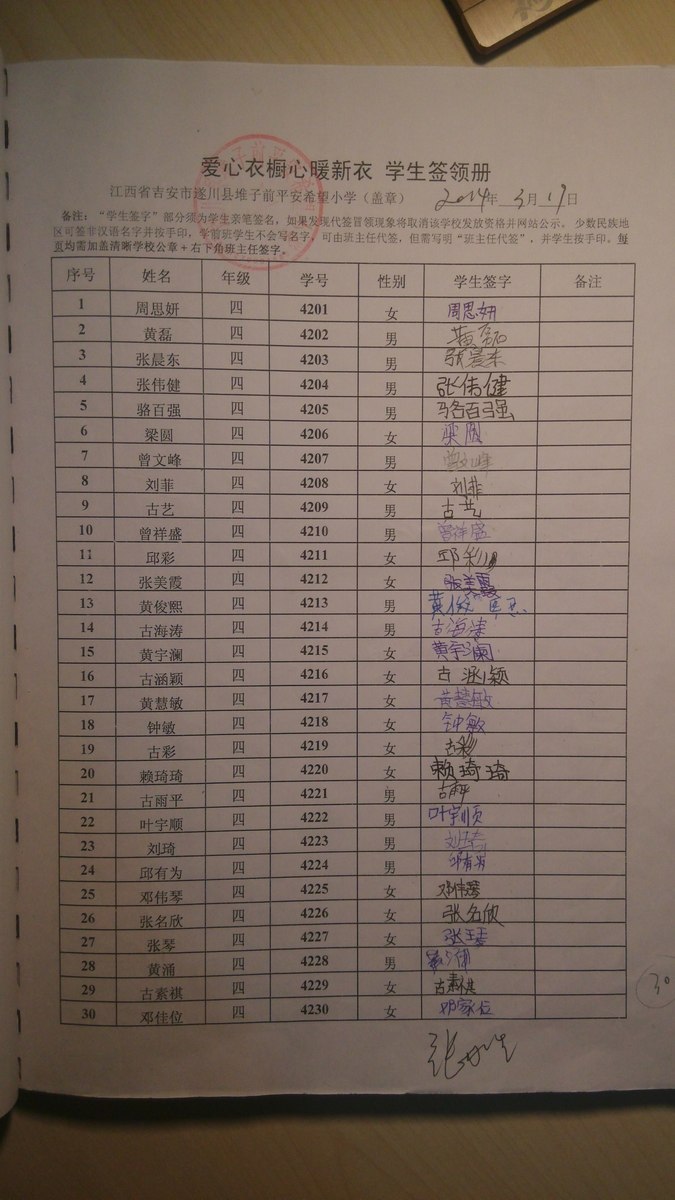 爱心衣橱心暖新衣 学生签领册
江西省吉安市遂川县堆子前平安希望小学（盖章） 2014年 3月 19日
备注："学生签字"部分须为学生亲笔签名，如果发现代签冒领现象将取消该学校发放资格并网站公示。少数民族地
区可签非汉语名字并按手印。学前班学生不会写名字，可由班主任代签，但需写明"班主任代签"，并学生按手印。每
页均需加盖清晰学校公章+右下角班主任签字。
序号 姓名 年级 学号 性别 学生签字 备注
1 周思妍 四 4201 女 周思妍
2 黄磊 四 4202 男 黄磊
3 张晨东 四 4203 男 张晨东
4 张伟健 四 4204 男 张伟健
5 骆百强 四 4205 男 骆百强
6 梁圆 四 4206 女 梁圆
7 曾文峰 四 4207 男 曾文峰
8 刘菲 四 4208 女 刘菲
9 古艺 四 4209 男 古艺
10 曾祥盛 四 4210 男 曾祥盛
11 邱彩 四 4211 女 邱彩
12 张美霞 四 4212 女 张美霞
13 黄俊熙 四 4213 男 黄俊熙
14 古海涛 四 4214 男 古海涛
15 黄宇澜 四 4215 女 黄宇澜
16 古涵颖 四 4216 女 古涵颖
17 黄慧敏 四 4217 女 黄慧敏
18 钟敏 四 4218 女 钟敏
19 古彩 四 4219 女 古彩
20 赖琦琦 四 4220 女 赖琦琦
21 古雨平 四 4221 男 古雨平
22 叶宇顺 四 4222 男 叶宇顺
23 刘琦 四 4223 男 刘琦
24 邱有为 四 4224 男 邱有为
25 邓伟琴 四 4225 女 邓伟琴
26 张名欣 四 4226 女 张名欣
27 张琴 四 4227 女 张琴
28 黄涌 四 4228 男
29 古素祺 四 4229 女 古素祺
30 邓佳位 四 4230 女 邓家位
30